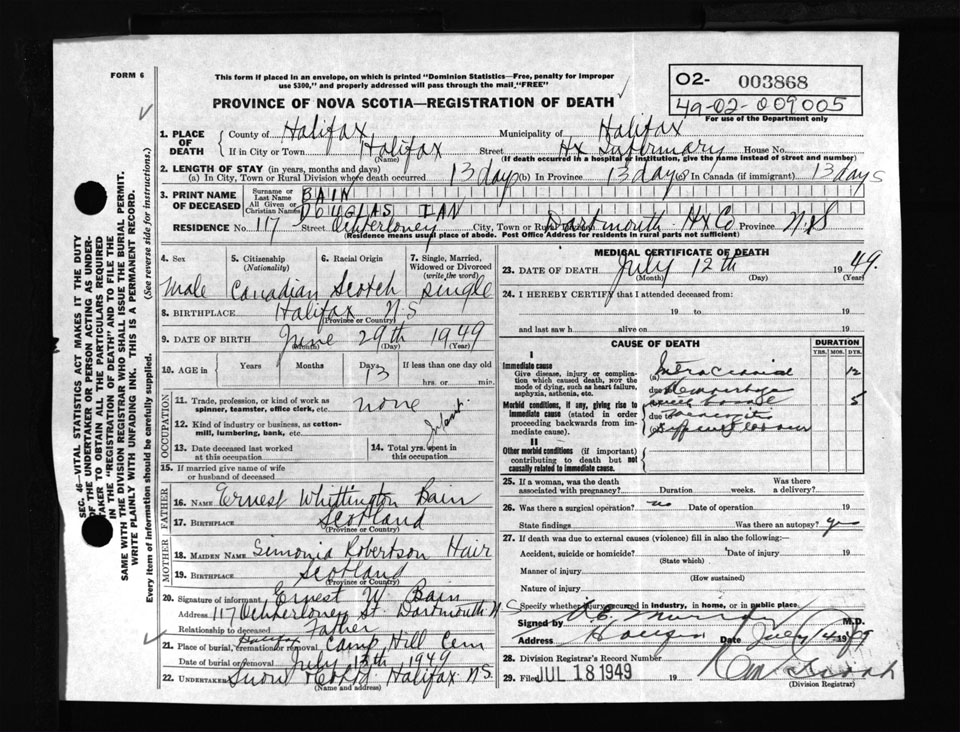 FORM 6
This form if placed in an envelope, on which is printed "Dominion Statistics—Free, penalty for improper
use $300," and properly addressed will pass through the mail "FREE"
O2- 003868
49-02-009005
For use of the Department only
PROVINCE OF NOVA SCOTIA—REGISTRATION OF DEATH
1. PLACE OF DEATH
County of Halifax Municipality of Halifax
If in City or Town Halifax Street Hx Infirmary House No.
(Name) (If death occurred in a hospital or institution, give the name instead of street and number)
2. LENGTH OF STAY (in years, months and days)
(a) In City, Town or Rural Division where death occurred 13 days (b) In Province 13 days (c) In Canada (if immigrant) 13 days
3. PRINT NAME OF DECEASED
Surname or Last Name BAIN
All Given or Christian Names DOUGLAS IAN
RESIDENCE No. 117 Street Ochterloney City, Town or Rural Dartmouth Hx Co Province N.S
(Residence means usual place of abode. Post Office Address for residents in rural parts not sufficient)
4. Sex
male
5. Citizenship (Nationality)
Canadian
6. Racial Origin
Scotch
7. Single, Married, Widowed or Divorced (write the word)
single
8. BIRTHPLACE Halifax N.S
(Province or Country)
9. DATE OF BIRTH June 29th 1949
(Month) (Day) (Year)
10. AGE in Years Months Days 13 If less than one day old
hrs. or min.
OCCUPATION
11. Trade, profession, or kind of work as spinner, teamster, office clerk, etc. none
12. Kind of industry or business, as cotton-mill, lumbering, bank, etc. Infant
13. Date deceased last worked at this occupation
14. Total yrs. spent in this occupation
15. If married give name of wife or husband of deceased
FATHER
16. NAME Ernest Whittington Bain
17. BIRTHPLACE Scotland
(Province or Country)
MOTHER
18. MAIDEN NAME Simonia Robertson Hair
19. BIRTHPLACE Scotland
(Province or Country)
20. Signature of informant Ernest W Bain
Address 117 Ochterloney St. Dartmouth N.S
Relationship to deceased Father
21. Place of burial, cremation or removal Halifax Camp Hill Cem
Date of burial or removal July 13th 1949
22. UNDERTAKER Snow Halifax N.S.
(Name and address)
MEDICAL CERTIFICATE OF DEATH
23. DATE OF DEATH July 12th 1949.
(Month) (Day) (Year)
24. I HEREBY CERTIFY that I attended deceased from:
19 to 19
and last saw h alive on 19
CAUSE OF DEATH
DURATION
YRS. MOS. DYS.
I
Immediate cause
Give disease, injury or complication which caused death, NOT the mode of dying, such as heart failure, asphyxia, asthenia, etc.
(a) Intracranial 12
due to Hemorrhage
Morbid conditions, if any, giving rise to immediate cause (stated in order proceeding backwards from immediate cause).
due to
II
Other morbid conditions (if important) contributing to death but not causally related to immediate cause.
25. If a woman, was the death associated with pregnancy? Duration weeks. Was there a delivery?
26. Was there a surgical operation? no Date of operation 19
State findings Was there an autopsy? yes
27. If death was due to external causes (violence) fill in also the following:
Accident, suicide or homicide? Date of injury 19
(State which)
Manner of injury
(How sustained)
Nature of injury
Specify whether injury occurred in industry, in home, or in public place.
Signed by M.D.
Address Date July 14 1949
28. Division Registrar's Record Number
29. Filed JUL 18 1949
(Division Registrar)
SEC. 46—VITAL STATISTICS ACT MAKES IT THE DUTY
OF THE UNDERTAKER OR PERSON ACTING AS UNDERTAKER TO OBTAIN ALL THE PARTICULARS REQUIRED
IN THE "REGISTRATION OF DEATH" AND TO FILE THE
SAME WITH THE DIVISION REGISTRAR WHO SHALL ISSUE THE BURIAL PERMIT.
WRITE PLAINLY WITH UNFADING INK. THIS IS A PERMANENT RECORD.
Every item of information should be carefully supplied. (See reverse side for instructions.)